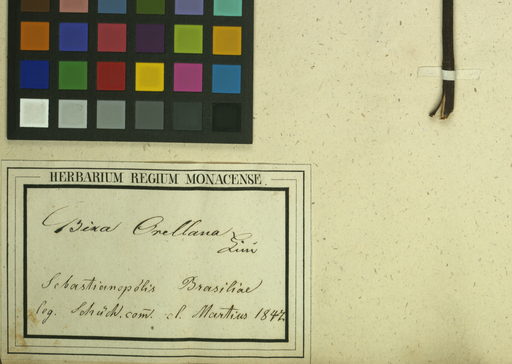 HERBARIUM REGIUM MONACENSE
Bixa Orellana
Linn
Sebastianopolis Brasiliae
leg. Schüch. com. cl. Martius 1847.